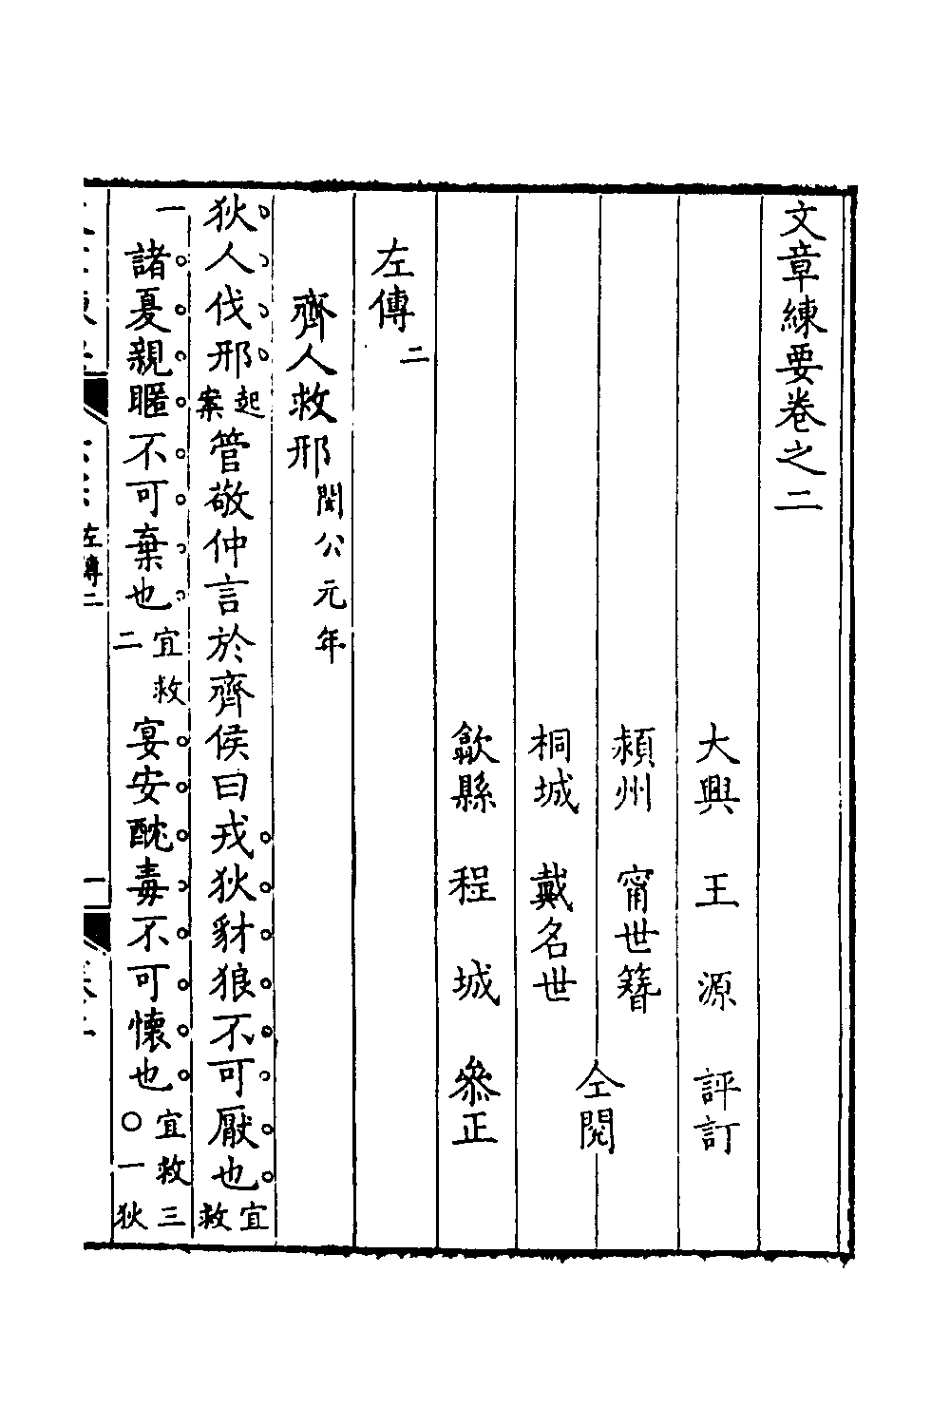 文章練要卷之二
大興 王 源 評訂
潁州 甯世簪
仝閱
桐城 戴名世
歙縣 程 城 叅正
左傳二
齊人救邢閔公元年
狄人伐邢起案管敬仲言於齊侯曰戎狄豺狼不可厭也宜救
一諸夏親暱不可棄也宜救二宴安酖毒不可懷也宜救三○一狄
左傳二
一